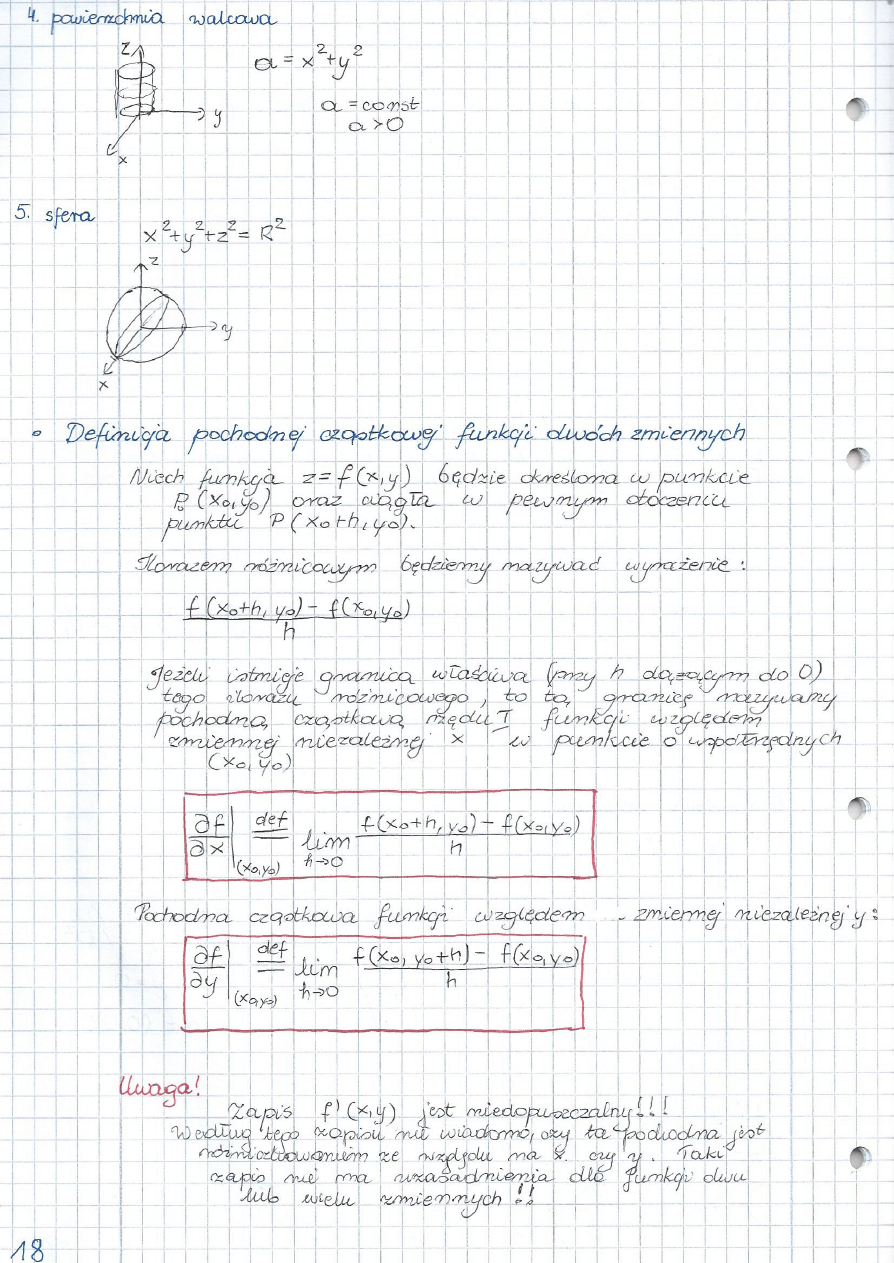 4. powierzchnia walcowa
z
a = x²+y²
a = const
a > 0
y
x
5. sfera
x²+y²+z² = R²
z
y
x
• Definicja pochodnej cząstkowej funkcji dwóch zmiennych
Niech funkcja z = f(x,y) będzie określona w punkcie
P₀(x₀,y₀) oraz ciągła w pewnym otoczeniu
punktu P(x₀+h,y₀).
Ilorazem różnicowym będziemy nazywać wyrażenie:
f(x₀+h, y₀) - f(x₀,y₀)
h
Jeżeli istnieje granica właściwa (przy h dążącym do 0)
tego ilorazu różnicowego, to tą granicę nazywamy
pochodną cząstkową rzędu I funkcji względem
zmiennej niezależnej x w punkcie o współrzędnych
(x₀,y₀)
∂f/∂x |(x₀,y₀) def= lim h→0 f(x₀+h, y₀) - f(x₀,y₀) / h
Pochodna cząstkowa funkcji względem - zmiennej niezależnej y:
∂f/∂y |(x₀,y₀) def= lim h→0 f(x₀, y₀+h) - f(x₀,y₀) / h
Uwaga!
Zapis f'(x,y) jest niedopuszczalny!!!
Według tego zapisu nie wiadomo, czy ta pochodna jest
różniczkowaniem ze względu na x czy y. Taki
zapis nie ma uzasadnienia dla funkcji dwu
lub wielu zmiennych!!
18